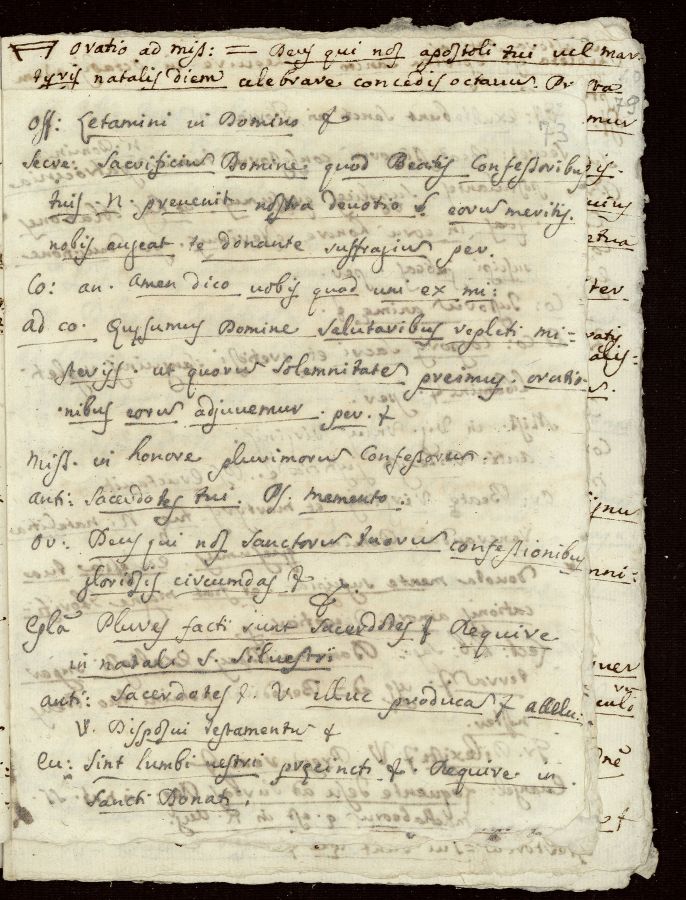 Oratio ad miss: = Deus qui nos apostoli tui vel mar-
tyris natalis diem celebrare concedis octavus. Pr
79
73
Off: Letamini in Domino &
Secre: Sacrificiu Domine quod Beatis Confessoribus
tuis N. prevenit nostra devotio & eorus meritis.
nobis augeat te donante suffragius per.
Co: an. Amen dico vobis quod uni ex mi:
ad co. Quesumus Domine salutaribus repleti mi-
sterijs ut quorus solemnitates preimus oratio-
nibus eorus adjuvemur per. &
Miss. in honore plurimorus Confessorus
anti: Sacerdotes tui. Ps. memento.
Or: Deus qui nos Sanctorus tuorus confessionibus
gloriosis circumdas &
Egla Plures facti sunt Sacerdotes & Require
in natali S. Silvestri
anti: Sacerdotes &. V. illuc producas & allelu:
V. Disposui testamentus &
Eu: Sint lumbi vestri precincti &. Require in
Sancti Donati.